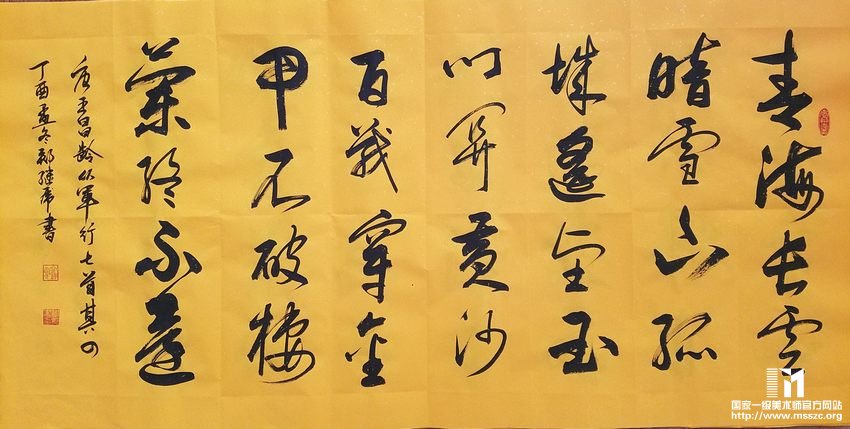 青海長雲
暗雪山孤
城遙望玉
門關黃沙
百戰穿金
甲不破樓
蘭終不還
唐王昌齡從軍行七首其四
丁酉孟冬書
国家一级美术师官方网站
http://www.msszc.org